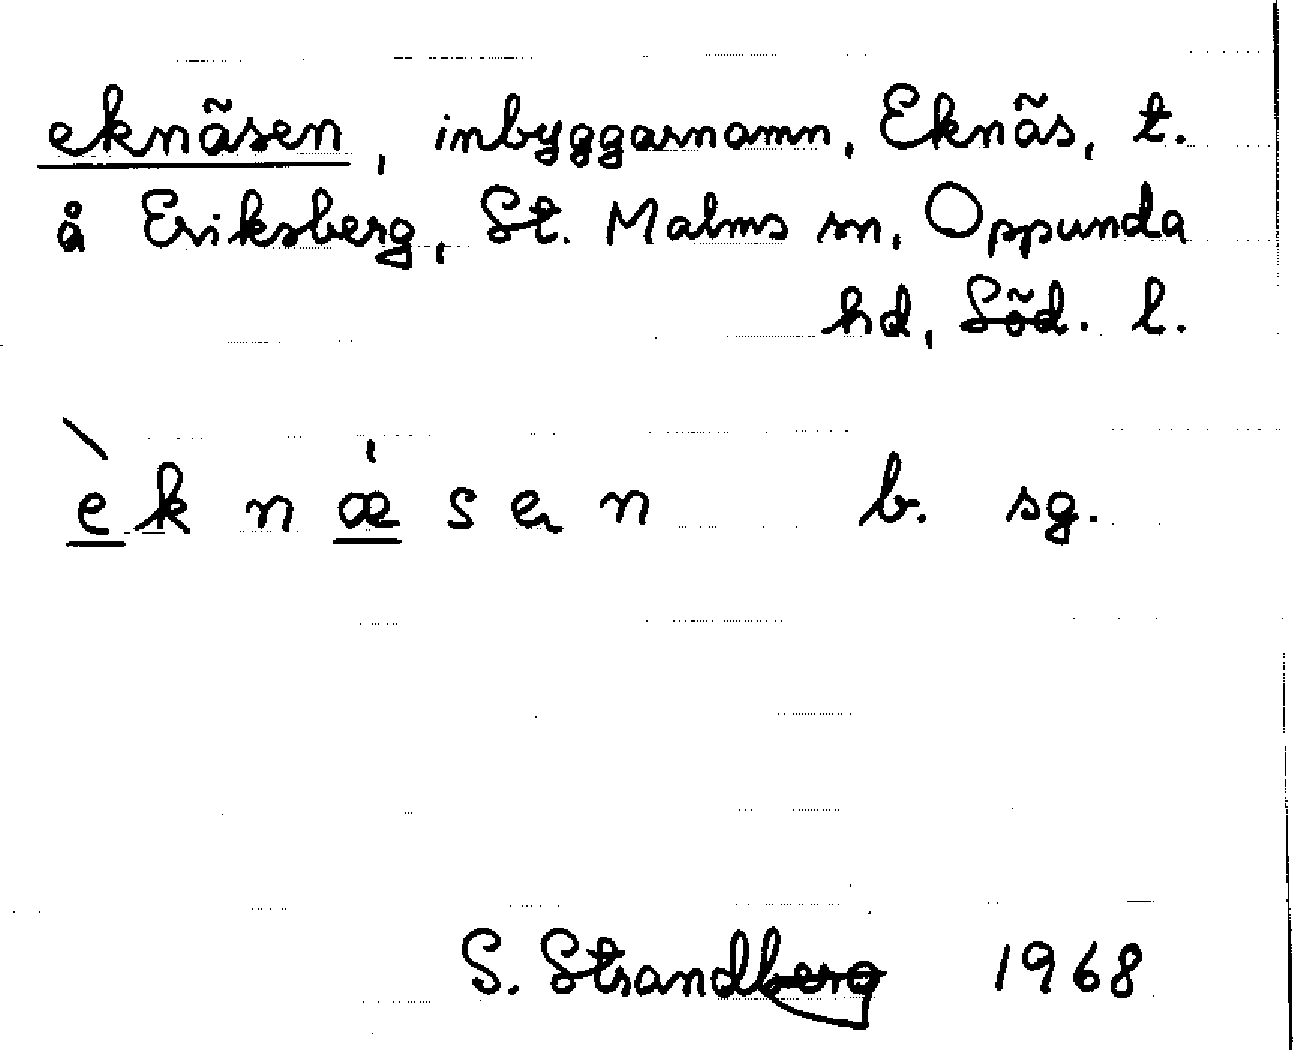 eknäsen, inbyggarnamn, Eknäs, t.
å Eriksberg, St. Malms sn, Oppunda
hd, Söd. l.
è k n æ̍ s e n b. sg.
S. Strandberg 1968